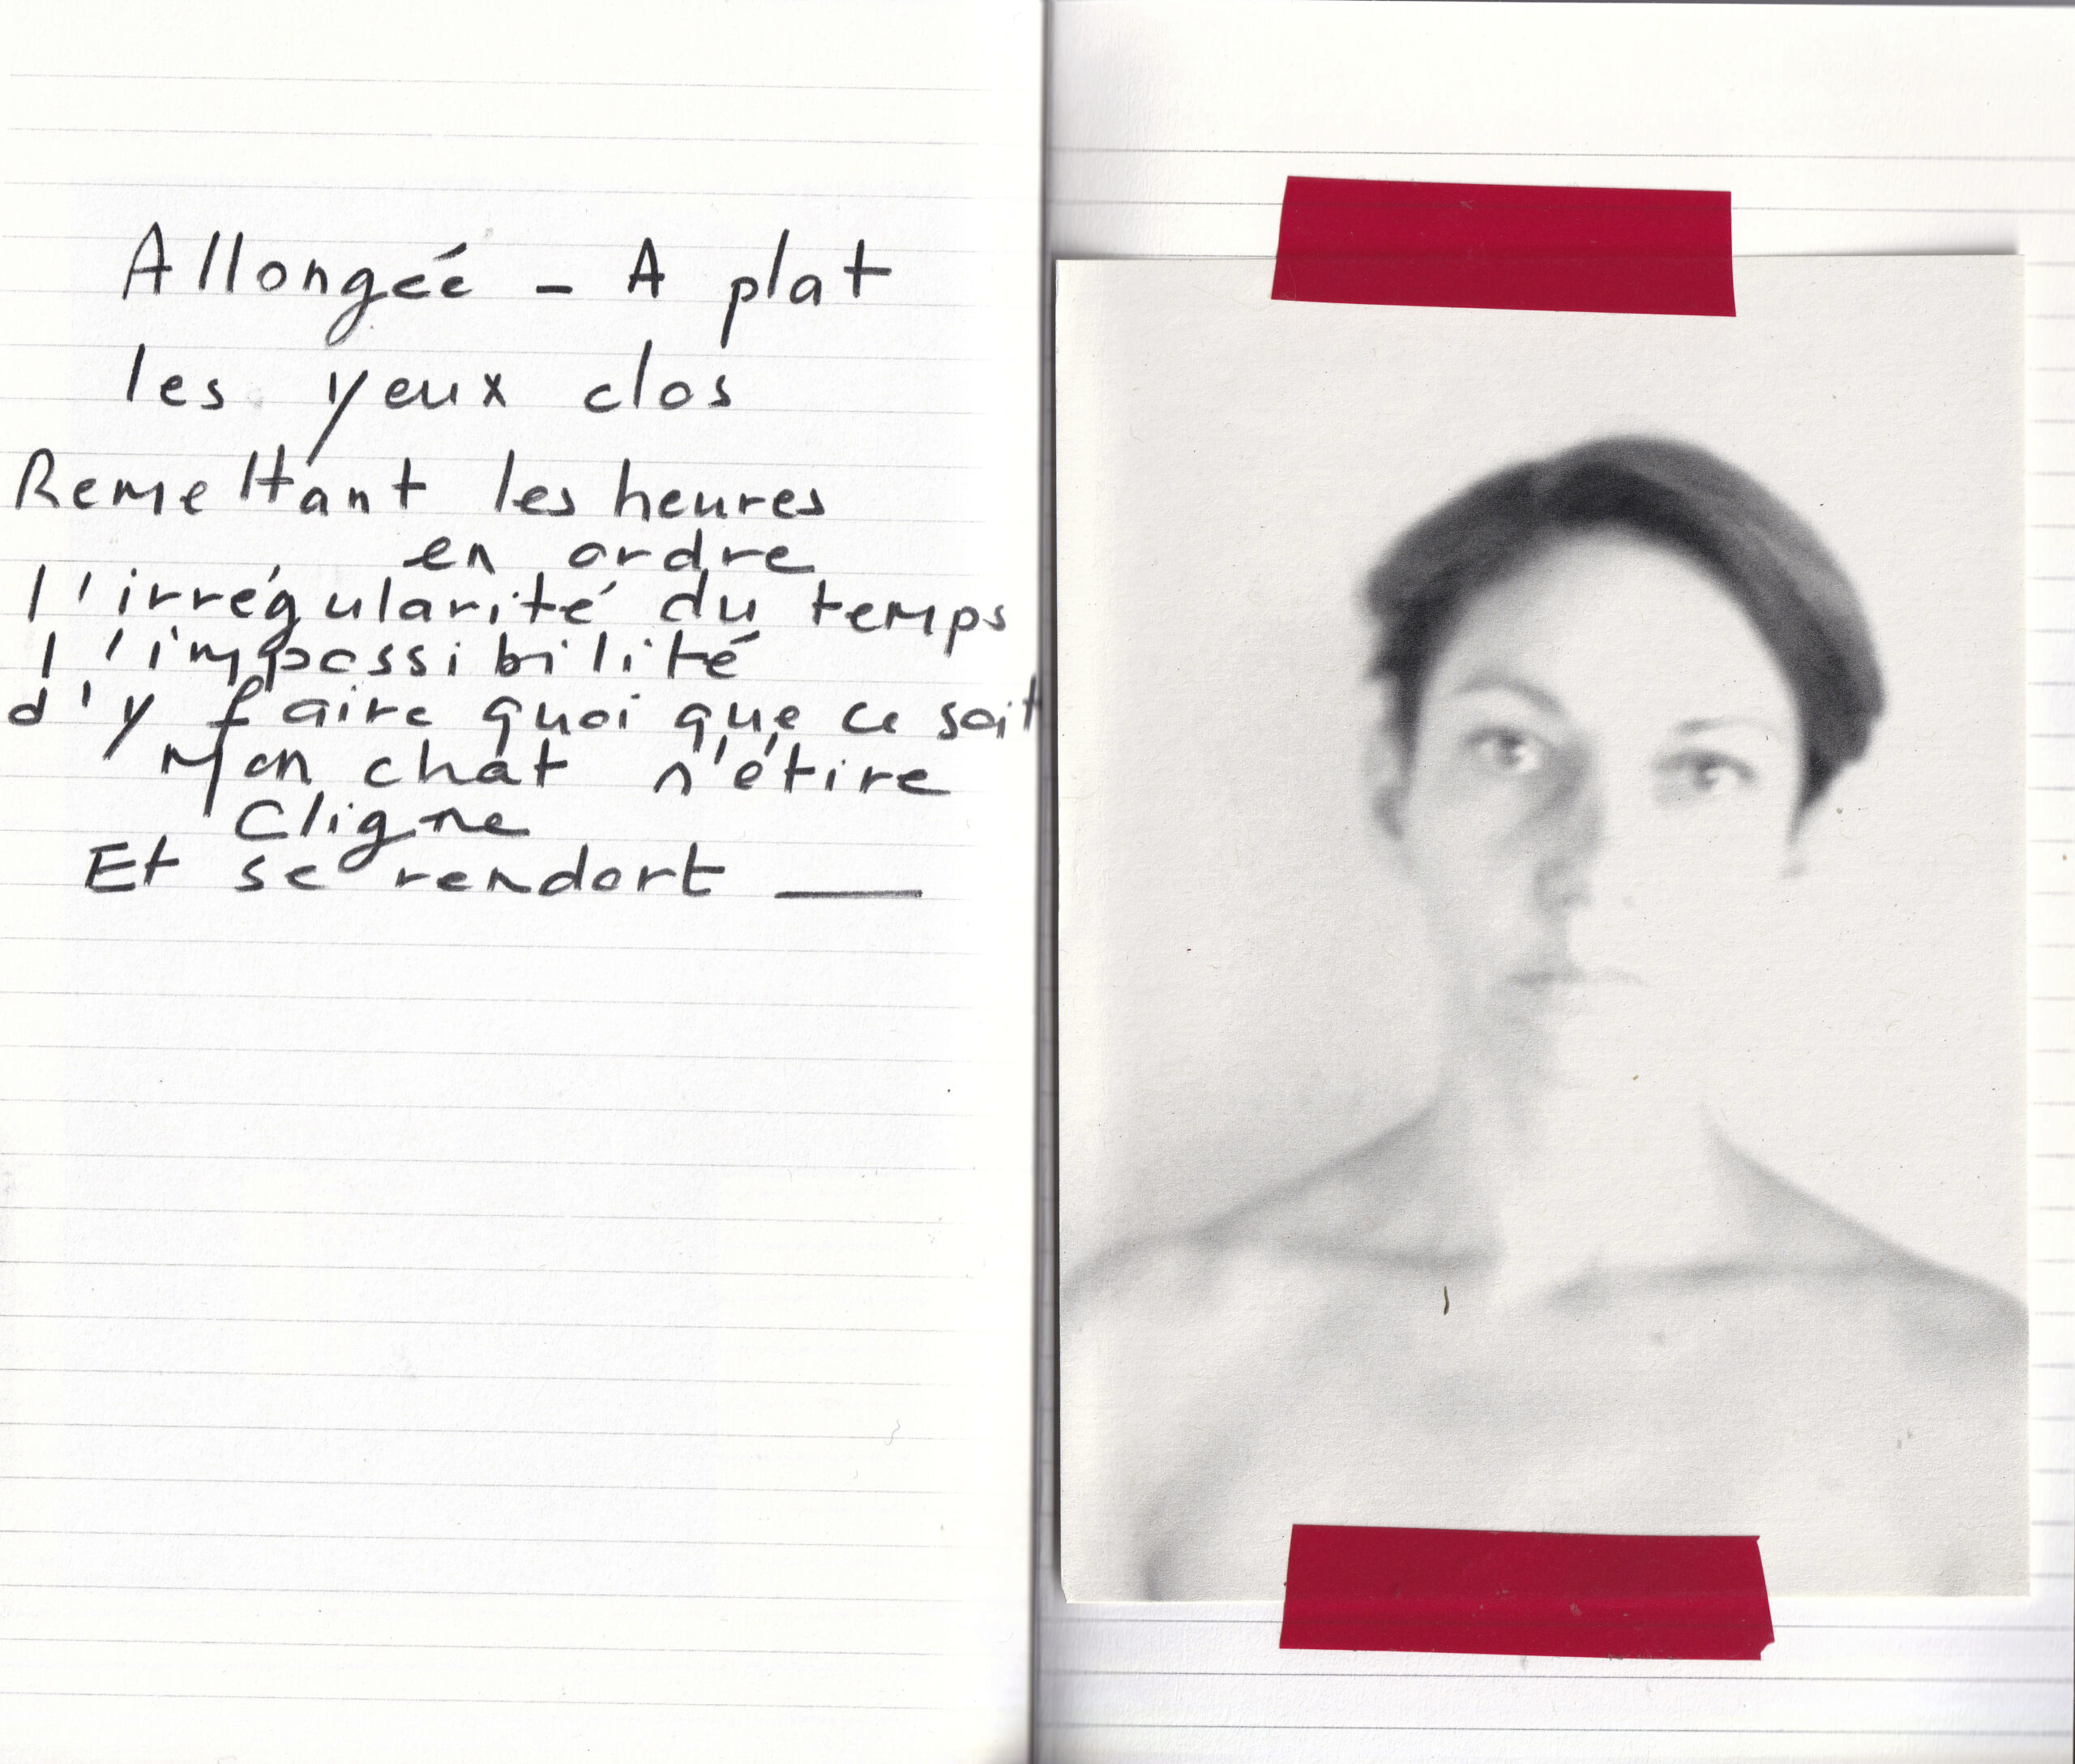 Allongéé - A plat
les yeux clos
Remettant les heures
en ordre
l'irrégularité du temps
l'impossibilité
d'y faire quoi que ce soit
Mon chat s'étire
Cligne
Et se rendort ___